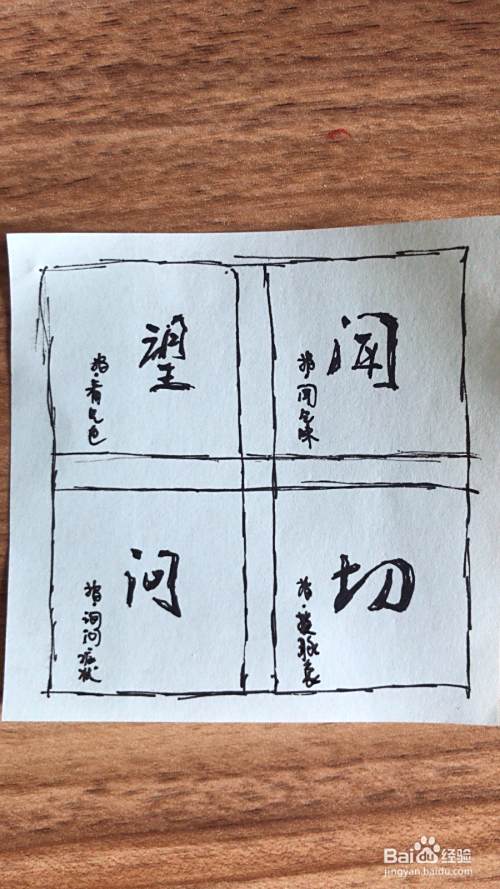 望
指·看气色
闻
指·闻气味
问
指·询问症状
切
指·摸脉象
Bai du 经验
jingyan.baidu.com